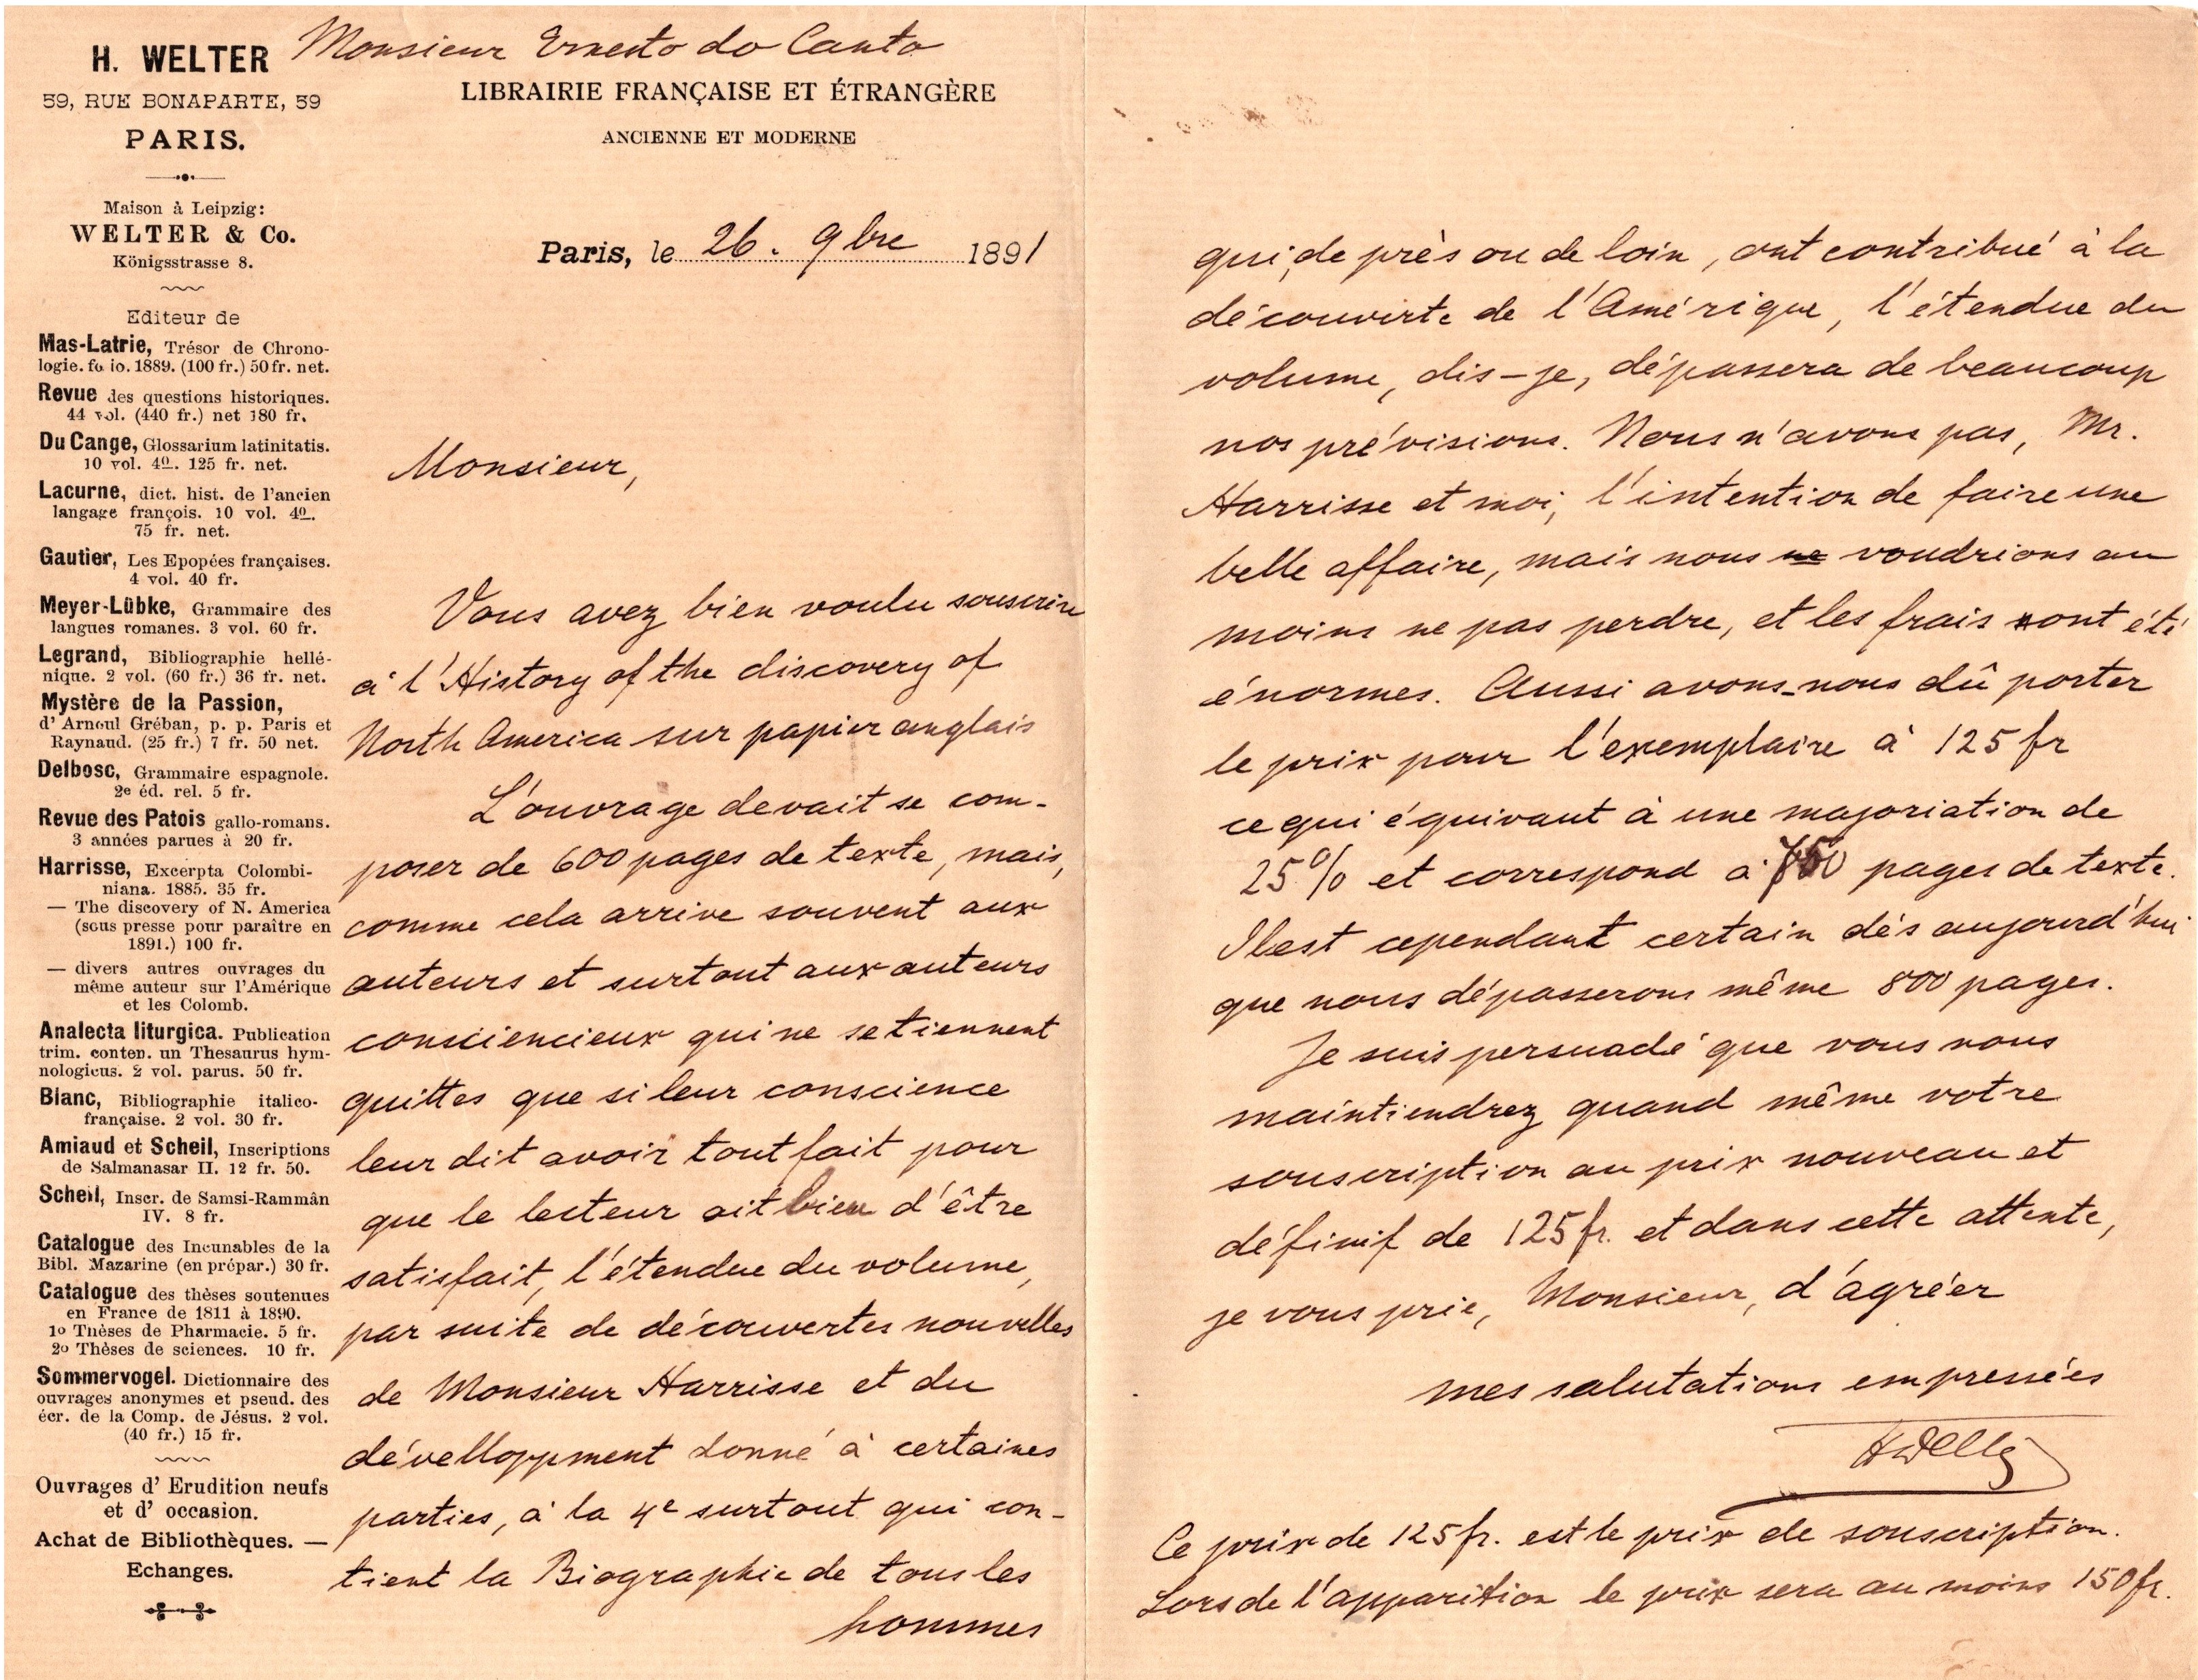 Monsieur Ernesto do Canto
H. WELTER
59, RUE BONAPARTE, 59
PARIS.
Maison à Leipzig:
WELTER & Co.
Königsstrasse 8.
Editeur de
Mas-Latrie, Trésor de Chrono-
logie. fo io. 1889. (100 fr.) 50 fr. net.
Revue des questions historiques.
44 vol. (440 fr.) net 180 fr.
Du Cange, Glossarium latinitatis.
10 vol. 4º. 125 fr. net.
Lacurne, dict. hist. de l'ancien
langage françois. 10 vol. 4º.
75 fr. net.
Gautier, Les Epopées françaises.
4 vol. 40 fr.
Meyer-Lübke, Grammaire des
langues romanes. 3 vol. 60 fr.
Legrand, Bibliographie hellé-
nique. 2 vol. (60 fr.) 36 fr. net.
Mystère de la Passion,
d' Arnoul Gréban, p. p. Paris et
Raynaud. (25 fr.) 7 fr. 50 net.
Delbosc, Grammaire espagnole.
2e éd. rel. 5 fr.
Revue des Patois gallo-romans.
3 années parues à 20 fr.
Harrisse, Excerpta Colombi-
niana. 1885. 35 fr.
— The discovery of N. America
(sous presse pour paraître en
1891.) 100 fr.
— divers autres ouvrages du
même auteur sur l'Amérique
et les Colomb.
Analecta liturgica. Publication
trim. conten. un Thesaurus hym-
nologicus. 2 vol. parus. 50 fr.
Blanc, Bibliographie italico-
française. 2 vol. 30 fr.
Amiaud et Scheil, Inscriptions
de Salmanasar II. 12 fr. 50.
Scheil, Inscr. de Samsi-Rammân
IV. 8 fr.
Catalogue des Incunables de la
Bibl. Mazarine (en prépar.) 30 fr.
Catalogue des thèses soutenues
en France de 1811 à 1890.
1o Thèses de Pharmacie. 5 fr.
2o Thèses de sciences. 10 fr.
Sommervogel. Dictionnaire des
ouvrages anonymes et pseud. des
écr. de la Comp. de Jésus. 2 vol.
(40 fr.) 15 fr.
Ouvrages d' Erudition neufs
et d' occasion.
Achat de Bibliothèques. —
Echanges.
LIBRAIRIE FRANÇAISE ET ÉTRANGÈRE
ANCIENNE ET MODERNE
Paris, le 26. 9bre 1891
Monsieur,
Vous avez bien voulu souscrire
à l'History of the discovery of
North America sur papier anglais
L'ouvrage devait se com-
poser de 600 pages de texte, mais,
comme cela arrive souvent aux
auteurs et surtout aux auteurs
consciencieux qui ne se tiennent
quittes que si leur conscience
leur dit avoir tout fait pour
que le lecteur ait bien d'être
satisfait, l'étendue du volume,
par suite de découvertes nouvelles
de Monsieur Harrisse et du
dévelloppment donné à certaines
parties, à la 4e surtout qui con-
tient la Biographie de tous les
hommes
qui, de près ou de loin, ont contribué à la
découverte de l'Amérique, l'étendue du
volume, dis-je, dépassera de beaucoup
nos prévisions. Nous n'avons pas, Mr.
Harrisse et moi, l'intention de faire une
belle affaire, mais nous ne voudrions au
moins ne pas perdre, et les frais ont été
énormes. Aussi avons-nous dû porter
le prix pour l'exemplaire à 125 fr
ce qui équivaut à une majoriation de
25% et correspond à 750 pages de texte.
Il est cependant certain dès aujourd'hui
que nous dépasserons même 800 pages.
Je suis persuadé que vous nous
maintiendrez quand même votre
souscription au prix nouveau et
définif de 125 fr. et dans cette attente,
je vous prie, Monsieur, d'agréer
mes salutations empressées
HWelter
Ce prix de 125 fr. est le prix de souscription.
Lors de l'apparition le prix sera au moins 150 fr.